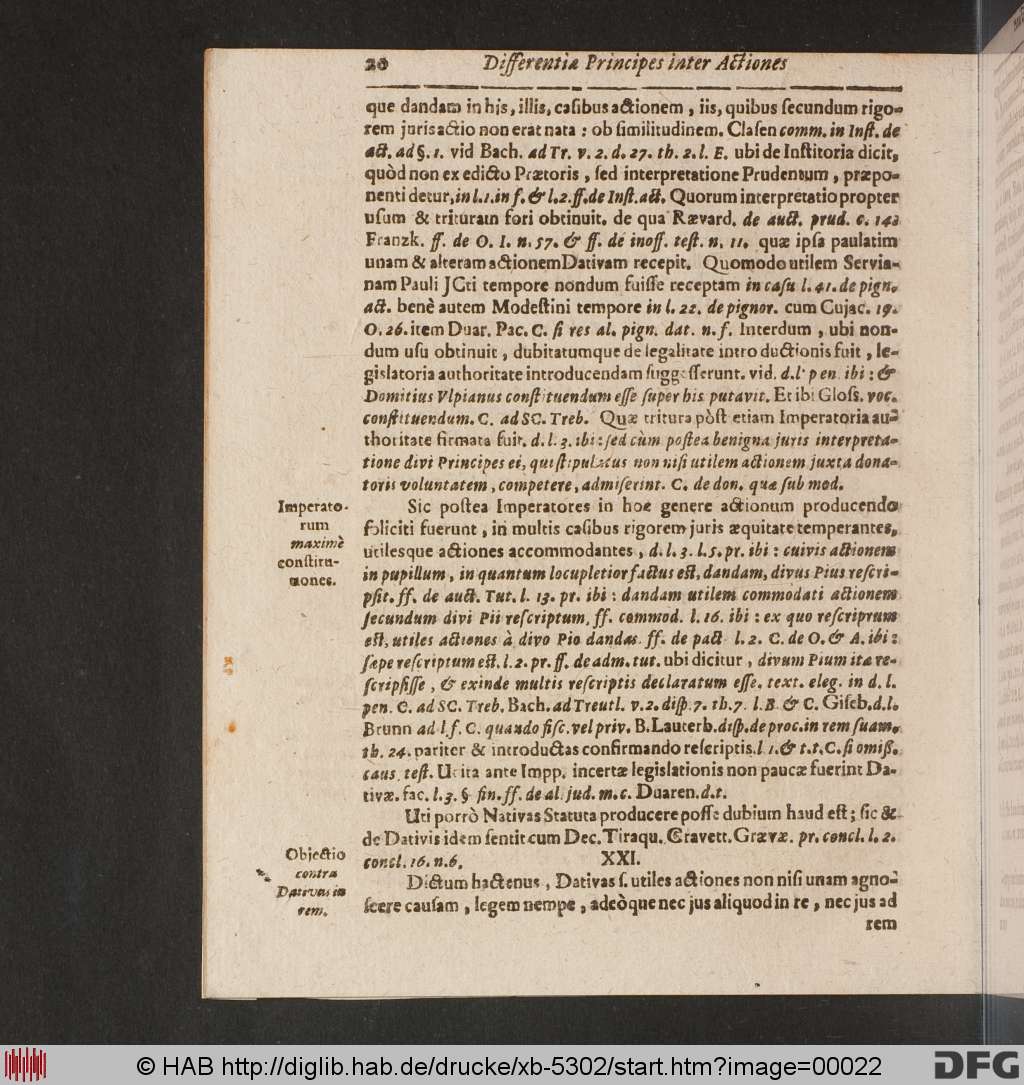 20 Differentiæ Principes inter Actiones
que dandam in hjs, illis, casibus actionem, iis, quibus secundum rigo-
rem juris actio non erat nata : ob similitudinem. Clasen comm. in Inst. de
act. ad §. 1. vid Bach. ad Tr. v. 2. d. 27. th. 2. l. E. ubi de Institoria dicit,
quòd non ex edicto Prætoris, sed interpretatione Prudentum, præpo-
nenti detur, in l. 1. in f. & l. 2. ff. de Inst. act. Quorum interpretatio propter
usum & trituram fori obtinuit. de qua Rævard. de auct. prud. c. 14.
Franzk. ff. de O. I. n. 57. & ff. de inoff. test. n. 11. quæ ipsa paulatim
unam & alteram actionem Dativam recepit. Quomodo utilem Servia-
nam Pauli JCti tempore nondum fuisse receptam in casu l. 41. de pign.
act. benè autem Modestini tempore in l. 22. de pignor. cum Cujac. 19.
O. 26. item Duar. Pac. C. si res al. pign. dat. n. f. Interdum, ubi non-
dum usu obtinuit, dubitatumque de legalitate introductionis fuit, le-
gislatoria authoritate introducendam suggesserunt. vid. d. l. pen. ibi : &
Domitius Vlpianus constituendum esse super his putavit. Et ibi Gloss. voc.
constituendum. C. ad SC. Treb. Quæ tritura pòst etiam Imperatoria au-
thoritate firmata fuit. d. l. 3. ibi : sed cùm postea benigna juris interpreta-
tione divi Principes ei, qui stipulatus non nisi utilem actionem juxta dona-
toris voluntatem, competere, admiserint. C. de don. quæ sub mod.
Imperato-
rum
maximè
constitu-
tiones.
Sic postea Imperatores in hoc genere actionum producendo
soliciti fuerunt, in multis casibus rigorem juris æquitate temperantes,
utilesque actiones accommodantes, d. l. 3. l. 5. pr. ibi : cuivis actionem
in pupillum, in quantum locupletior factus est, dandam, divus Pius rescri-
psit. ff. de auct. Tut. l. 13. pr. ibi : dandam utilem commodati actionem
secundum divi Pii rescriptum, ff. commod. l. 16. ibi : ex quo rescriptum
est, utiles actiones à divo Pio dandas ff. de pact l. 2. C. de O. & A. ibi :
sæpe rescriptum est. l. 2. pr. ff. de adm. tut. ubi dicitur, divum Pium ita re-
scripsisse, & exinde multis rescriptis declaratum esse. text. eleg. in d. l.
pen. C. ad SC. Treb. Bach. ad Treutl. v. 2. disp. 7. th. 7. l. B. & C. Giseb. d. l.
Brunn ad l. f. C. quando fisc. vel priv. B. Lauterb. disp. de proc. in rem suam.
th. 24. pariter & introductas confirmando rescriptis. l 1. & t. t. C. si omiss.
caus. test. Ut ita ante Impp. incertæ legislationis non paucæ fuerint Da-
tivæ. fac. l. 3. § fin. ff. de al. jud. m. c. Duaren. d. t.
Uti porrò Nativas Statuta producere posse dubium haud est ; sic &
de Dativis idem sentit cum Dec. Tiraqu. Cravett. Grævæ. pr. concl. l. 2.
concl. 16. n. 6.
XXI.
Objectio
contra
Dativas in
rem.
Dictum hactenus, Dativas s. utiles actiones non nisi unam agno-
scere causam, legem nempe, adeòque nec jus aliquod in re, nec jus ad
rem
© HAB http://diglib.hab.de/drucke/xb-5302/start.htm?image=00022
DFG